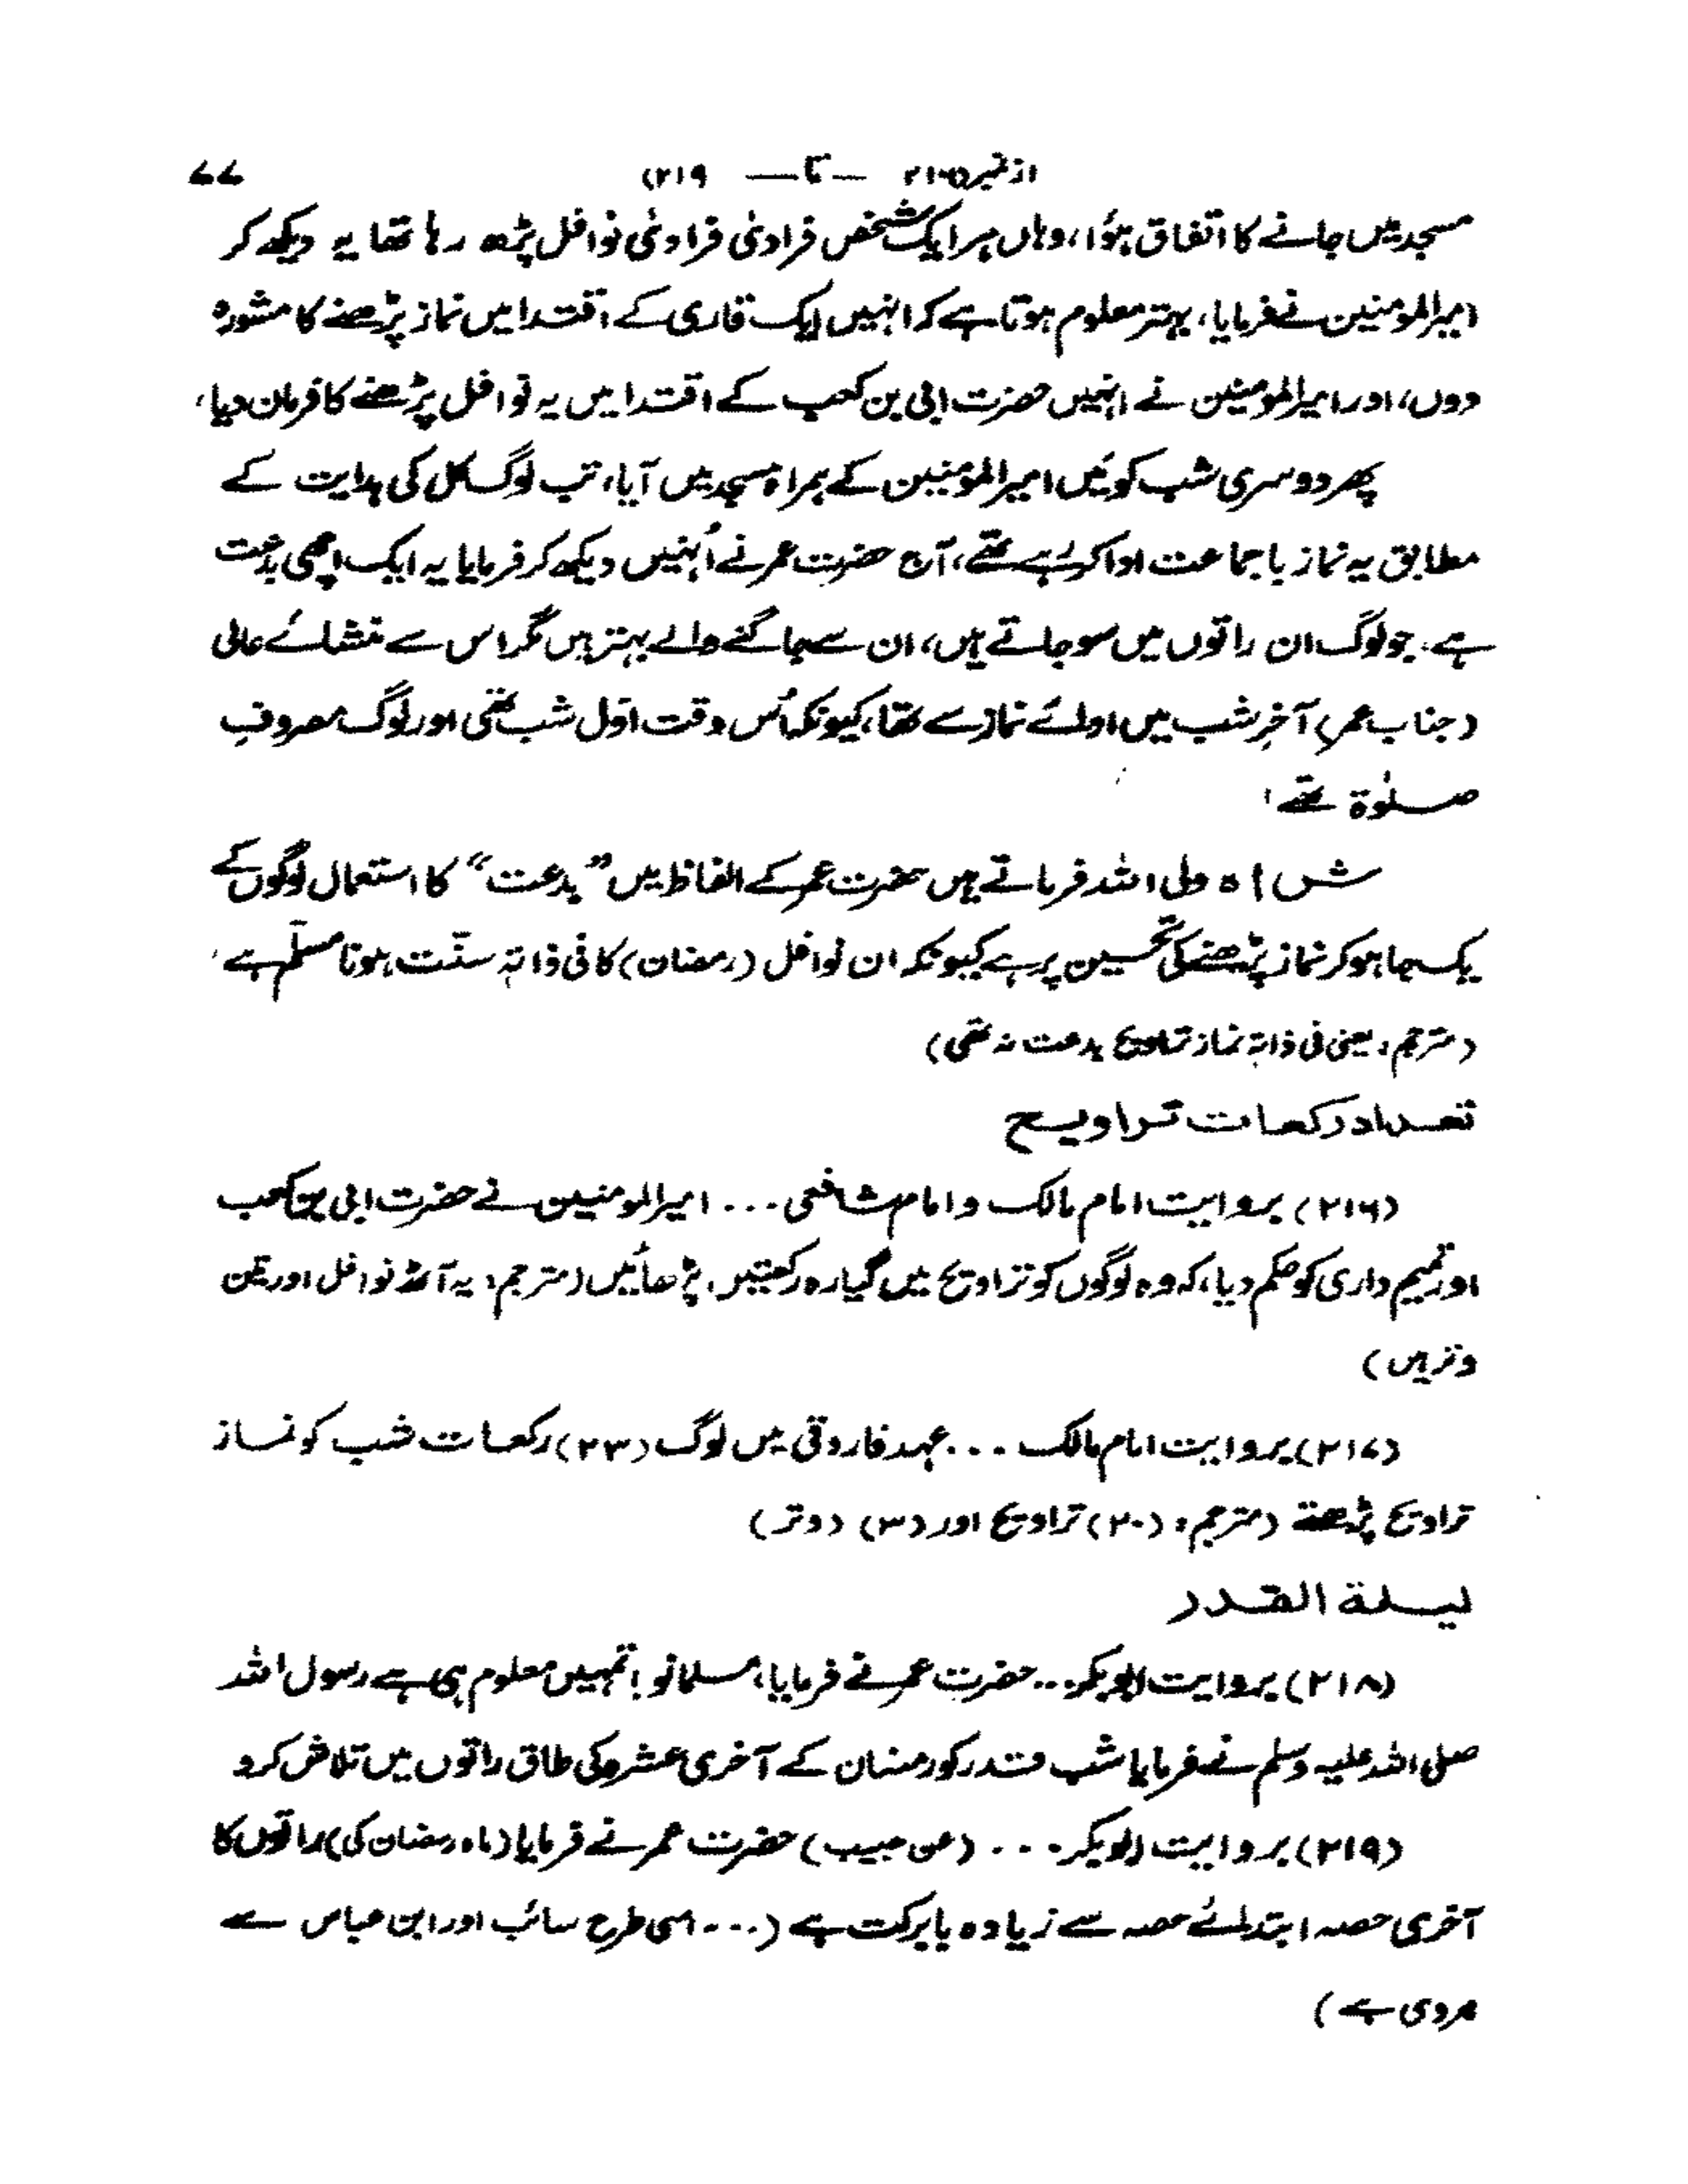 از نمبر ۲۱۶ — تا — ۲۱۹) ۷۷
مسجد میں جانے کا اتفاق ہؤا، وہاں ہر ایک شخص فرادیٰ فرادیٰ نوافل پڑھ رہا تھا یہ دیکھ کر
امیرالمومنین نے فرمایا، بہتر معلوم ہوتا ہے کہ انہیں ایک قاری کے اقتدا میں نماز پڑھنے کا مشورہ
دوں، اور امیرالمومنین نے انہیں حضرت ابی بن کعب کے اقتدا میں یہ نوافل پڑھنے کا فرمان دیا،
پھر دوسری شب کو میں امیرالمومنین کے ہمراہ مسجد میں آیا، تب لوگ کل کی ہدایت کے
مطابق یہ نماز با جماعت ادا کر رہے تھے، آج حضرت عمر نے اُنہیں دیکھ کر فرمایا یہ ایک اچھی بدعت
ہے۔ جو لوگ ان راتوں میں سو جاتے ہیں، ان سے جاگنے والے بہتر ہیں مگر اس سے منشائے عالی
(جناب عمر) آخرِ شب میں ادائے نماز سے تھا، کیونکہ اُس وقت اوّل شب تھی اور لوگ مصروفِ
صلوٰۃ تھے،
شاہ ولی اللہ فرماتے ہیں حضرت عمر کے الفاظ میں ”بدعت“ کا استعمال لوگوں کے
یک جا ہو کر نماز پڑھنے کی تحسین پر ہے کیونکہ ان نوافل (رمضان) کا فی ذاتہٖ سنّت ہونا مسلّم ہے،
(مترجم: یعنی فی ذاتہٖ نماز تراویح بدعت نہ تھی)
تعداد رکعات تراویح
(۲۱۶) بروایت امام مالک و امام شافعی ... امیرالمومنین نے حضرت ابی بن کعب
اور تمیم داری کو حکم دیا، کہ وہ لوگوں کو تراویح میں گیارہ رکعتیں، پڑھائیں (مترجم: یہ آٹھ نوافل اور تین
وتر ہیں)
(۲۱۷) بروایت امام مالک ... عہد فاروقی میں لوگ (۲۳) رکعات شب کو نماز
تراویح پڑھتے (مترجم: (۲۰) تراویح اور (۳) (وتر)
لیلۃ القدر
(۲۱۸) بروایت ابوبکر... حضرت عمر نے فرمایا، مسلمانو! تمہیں معلوم ہی ہے رسول اللہ
صلی اللہ علیہ وسلم نے فرمایا شب قدر کو رمضان کے آخری عشرہ کی طاق راتوں میں تلاش کرو
(۲۱۹) بروایت ابوبکر ... (عن حبیب) حضرت عمر نے فرمایا (ماہ رمضان کی) راتوں کا
آخری حصہ ابتدائے حصہ سے زیادہ بابرکت ہے (... اسی طرح سائب اور ابن عباس سے
مروی ہے)